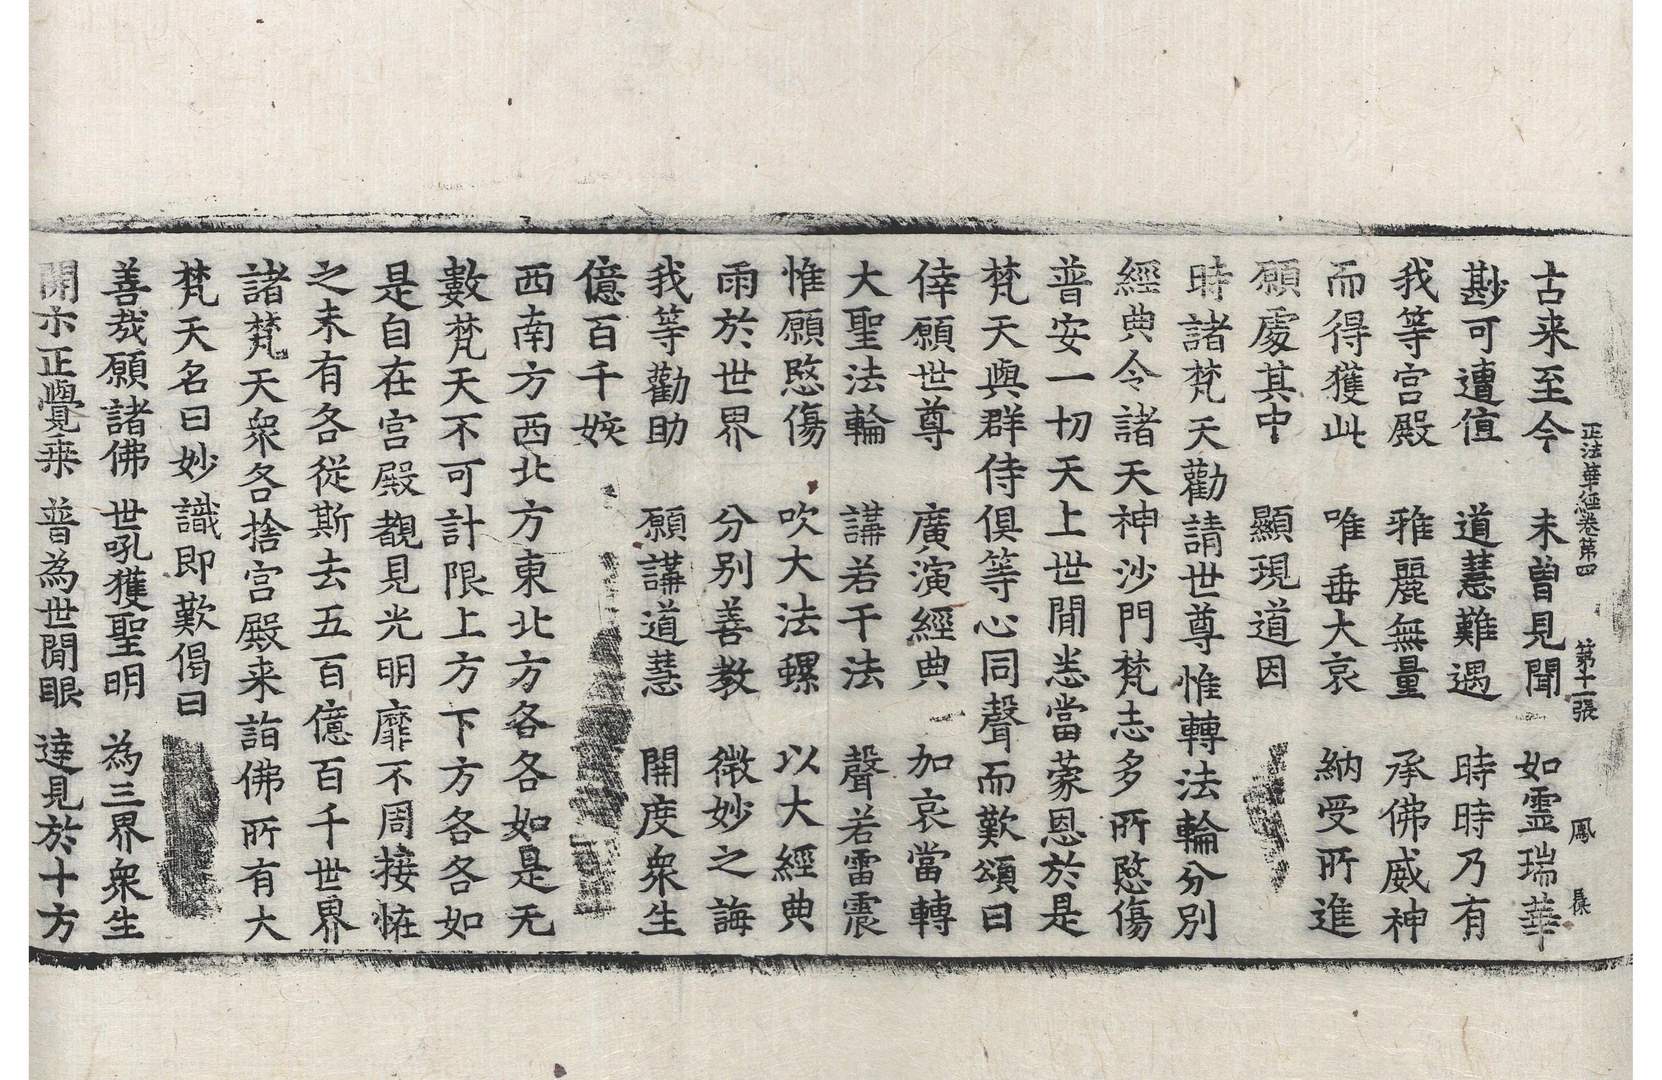 正法華經卷第四　第十二張　鳳　長
古来至今　未曾見聞　如霊瑞華
尠可遭值　道慧難遇　時時乃有
我等宮殿　雅麗無量　承佛威神
而得獲此　唯垂大哀　納受所進
願處其中　顯現道因
時諸梵天勸請世尊惟轉法輪分別
經典令諸天神沙門梵志多所愍傷
普安一切天上世間恙當蒙恩於是
梵天與群侍俱等心同聲而歎頌曰
倖願世尊　廣演經典　加哀當轉
大聖法輪　講若干法　聲若雷震
惟願愍傷　吹大法螺　以大經典
雨於世界　分別善教　微妙之誨
我等勸助　願講道慧　開度衆生
億百千姟
西南方西北方東北方各各如是无
數梵天不可計限上方下方各各如
是自在宮殿覩見光明靡不周接恠
之未有各從斯去五百億百千世界
諸梵天衆各捨宮殿来詣佛所有大
梵天名曰妙識即歎偈曰
善哉願諸佛　世吼獲聖明　為三界衆生
開示正覺乗　普為世間眼　達見於十方